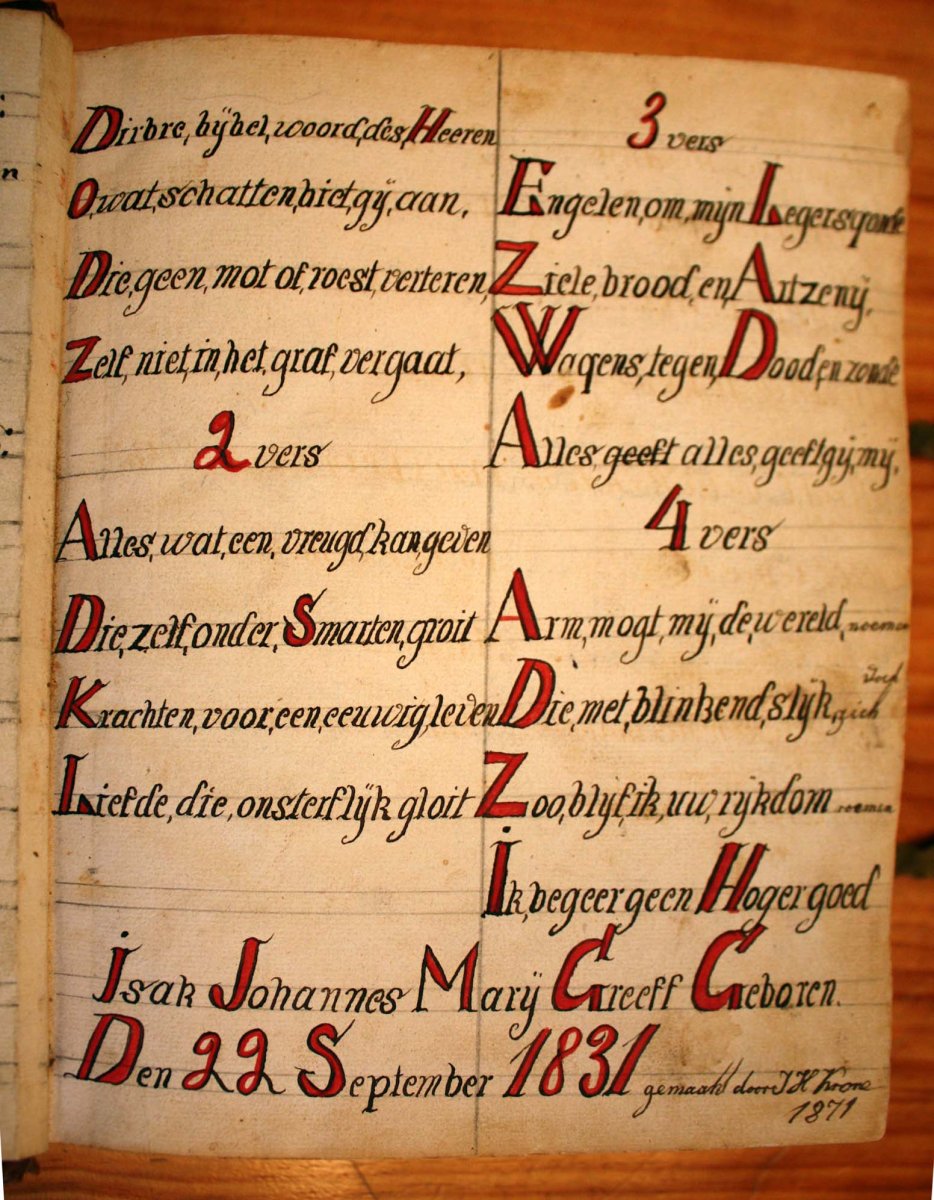 Dirbre, bijbel, woord, des, Heeren
O, wat, schatten, biet, gij, aan,
Die, geen, mot of, roest, verteren,
Zelf, niet, in, het, graf, vergaat,
2 vers
Alles, wat, een, vreugd, kan, geven
Die, zelf, onder, Smarten, groit
Krachten, voor, een, eeuwig, leven
Liefde, die, onsterflijk gloit
3 vers
Engelen, om, mijn Legersponde
Ziele, brood, en, Artzenij,
Wapens, tegen, Dood, en zonde
Alles, geeft alles, geeft gij, mij,
4 vers
Arm, mogt, mij, de, wereld, noemen
Die, met, blinkend, slijk, zich doed
Zoo, blijf, ik, uw, rijkdom roemen
Ik, begeer geen Hoger goed
Isak Johannes Marij Greeff Geboren.
Den 22 September 1831 gemaakt door J H Krone
1871